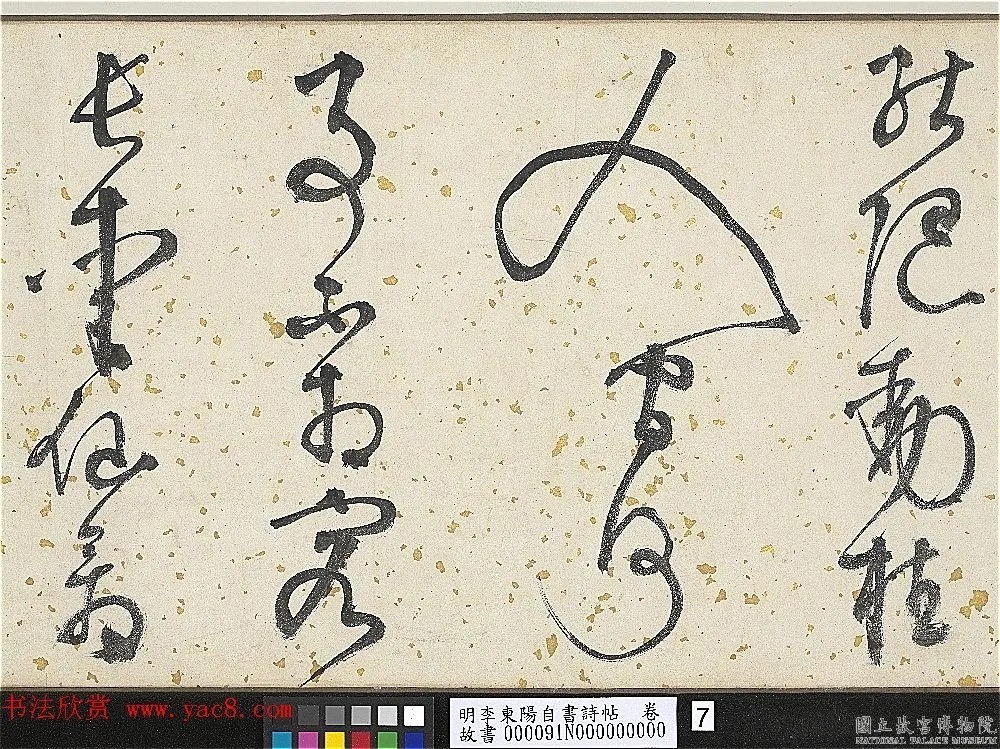 動
人間何
事不相容
長仙翁
书法欣赏 www.yac8.com
明李東陽自書詩帖 卷
故書 000091N000000000
7
國立故宮博物院
NATIONAL PALACE MUSEUM